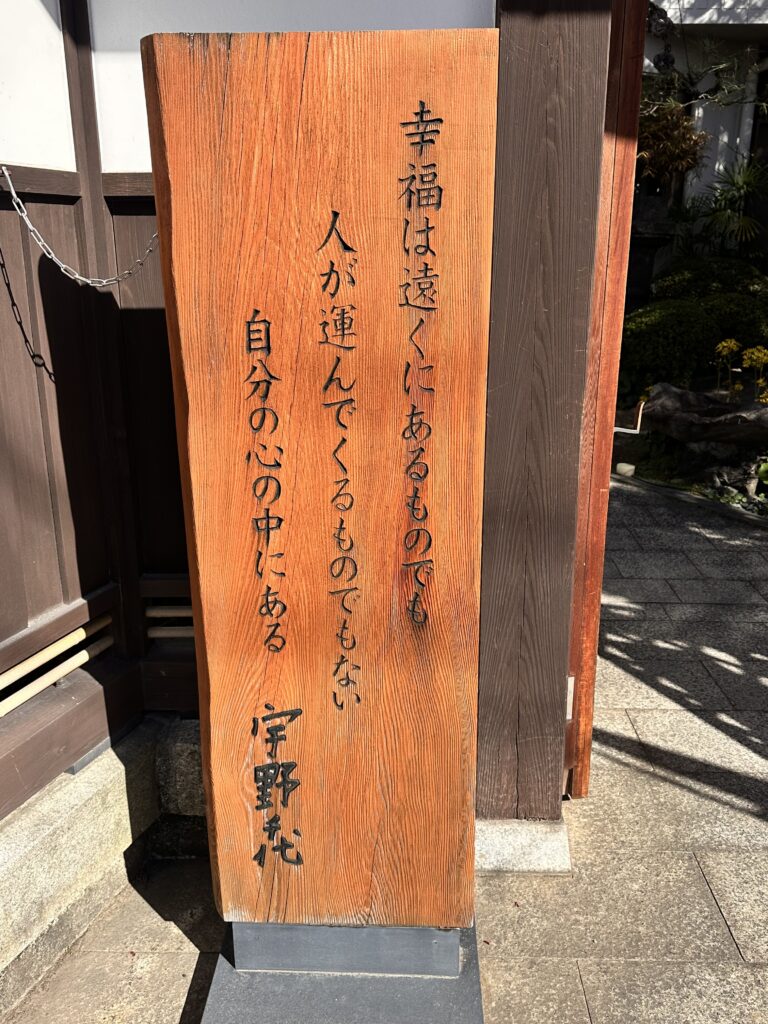 幸福は遠くにあるものでも
人が運んでくるものでもない
自分の心の中にある
宇野千代